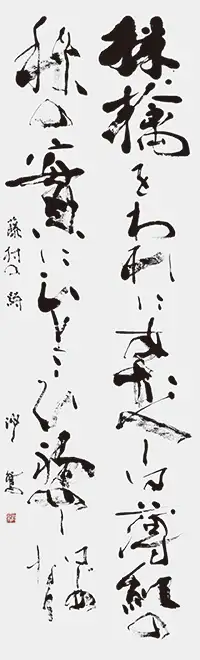 林檎をわれにあたへしは薄紅の
秋の實に人こひ初めしはじめなり
藤村の詩